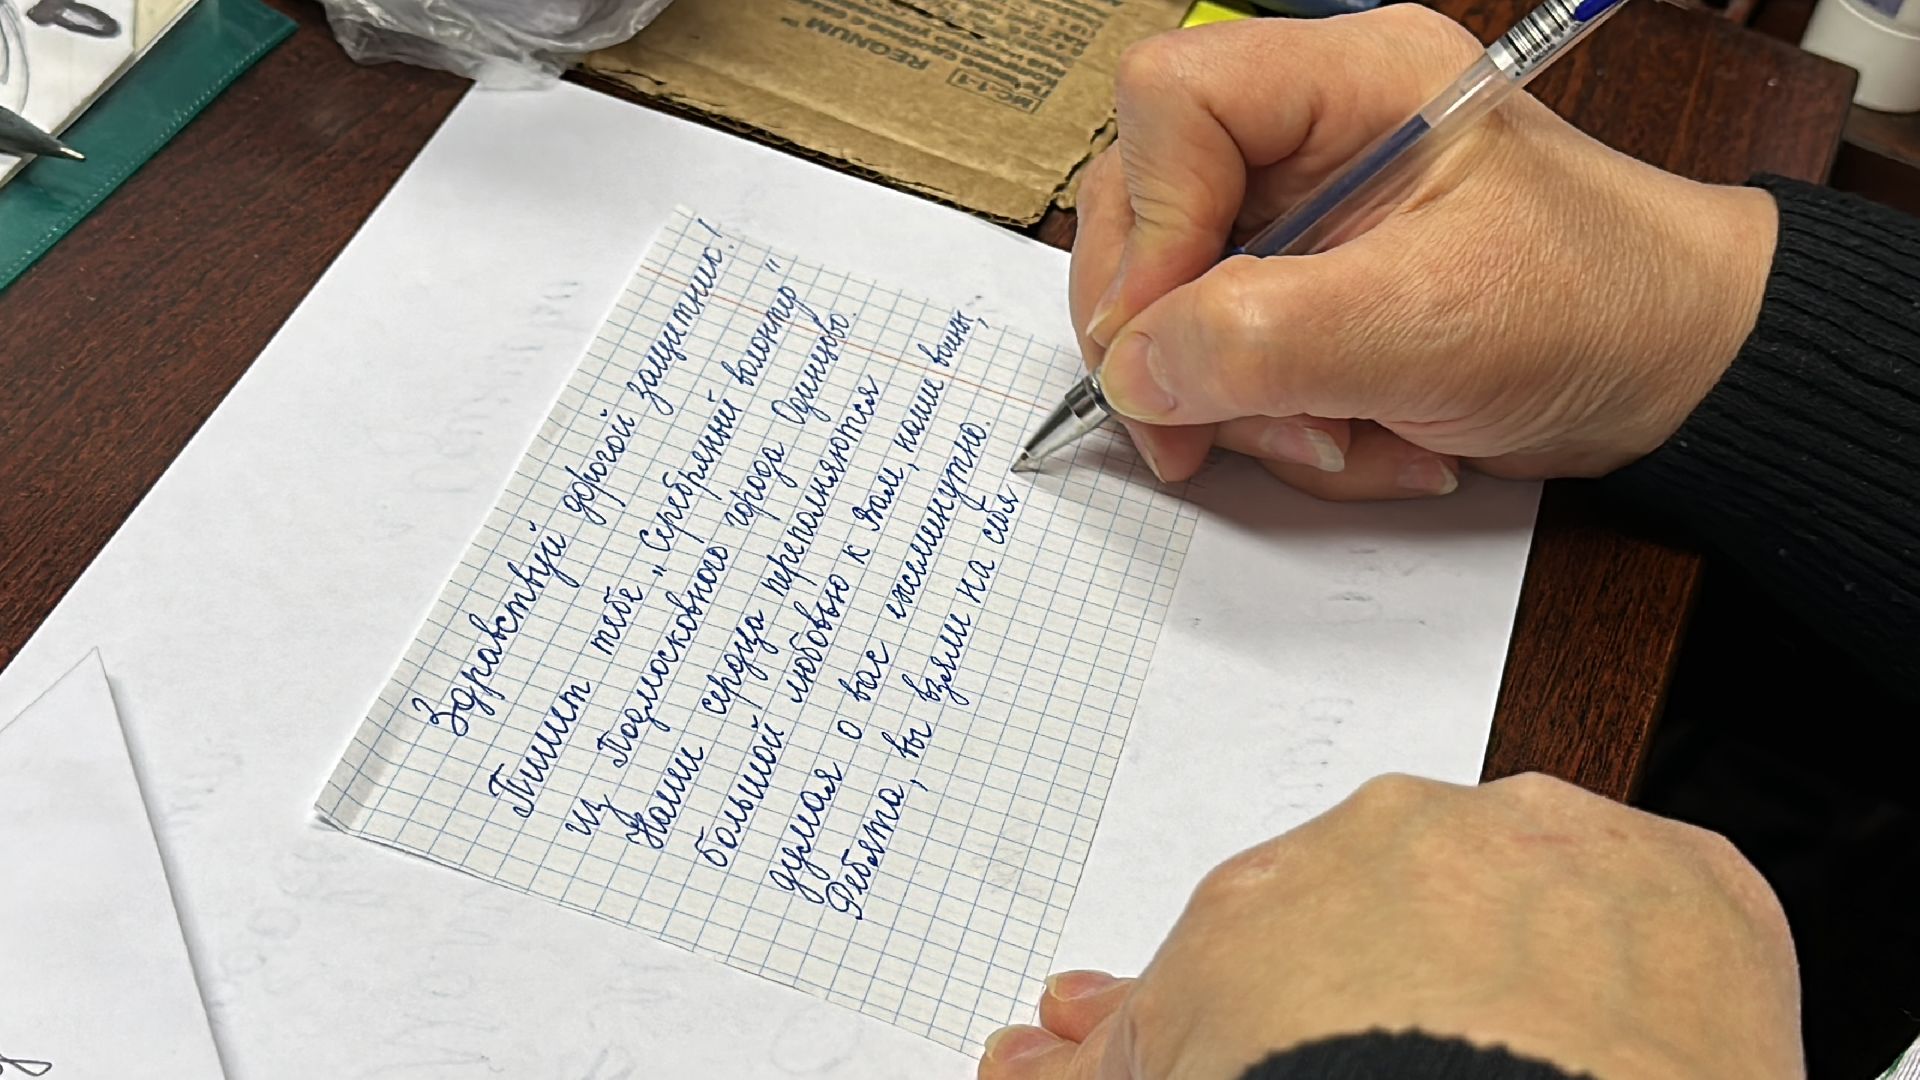 Здравствуй дорогой защитник!
Пишет тебе "Серебряный волонтер"
из Подмосковного города Одинцово.
Наши сердца переполняются
большой любовью к Вам, наши воины,
думая о вас ежеминутно.
Ребята, вы взяли на себя
REGNUM™
МС-1-1